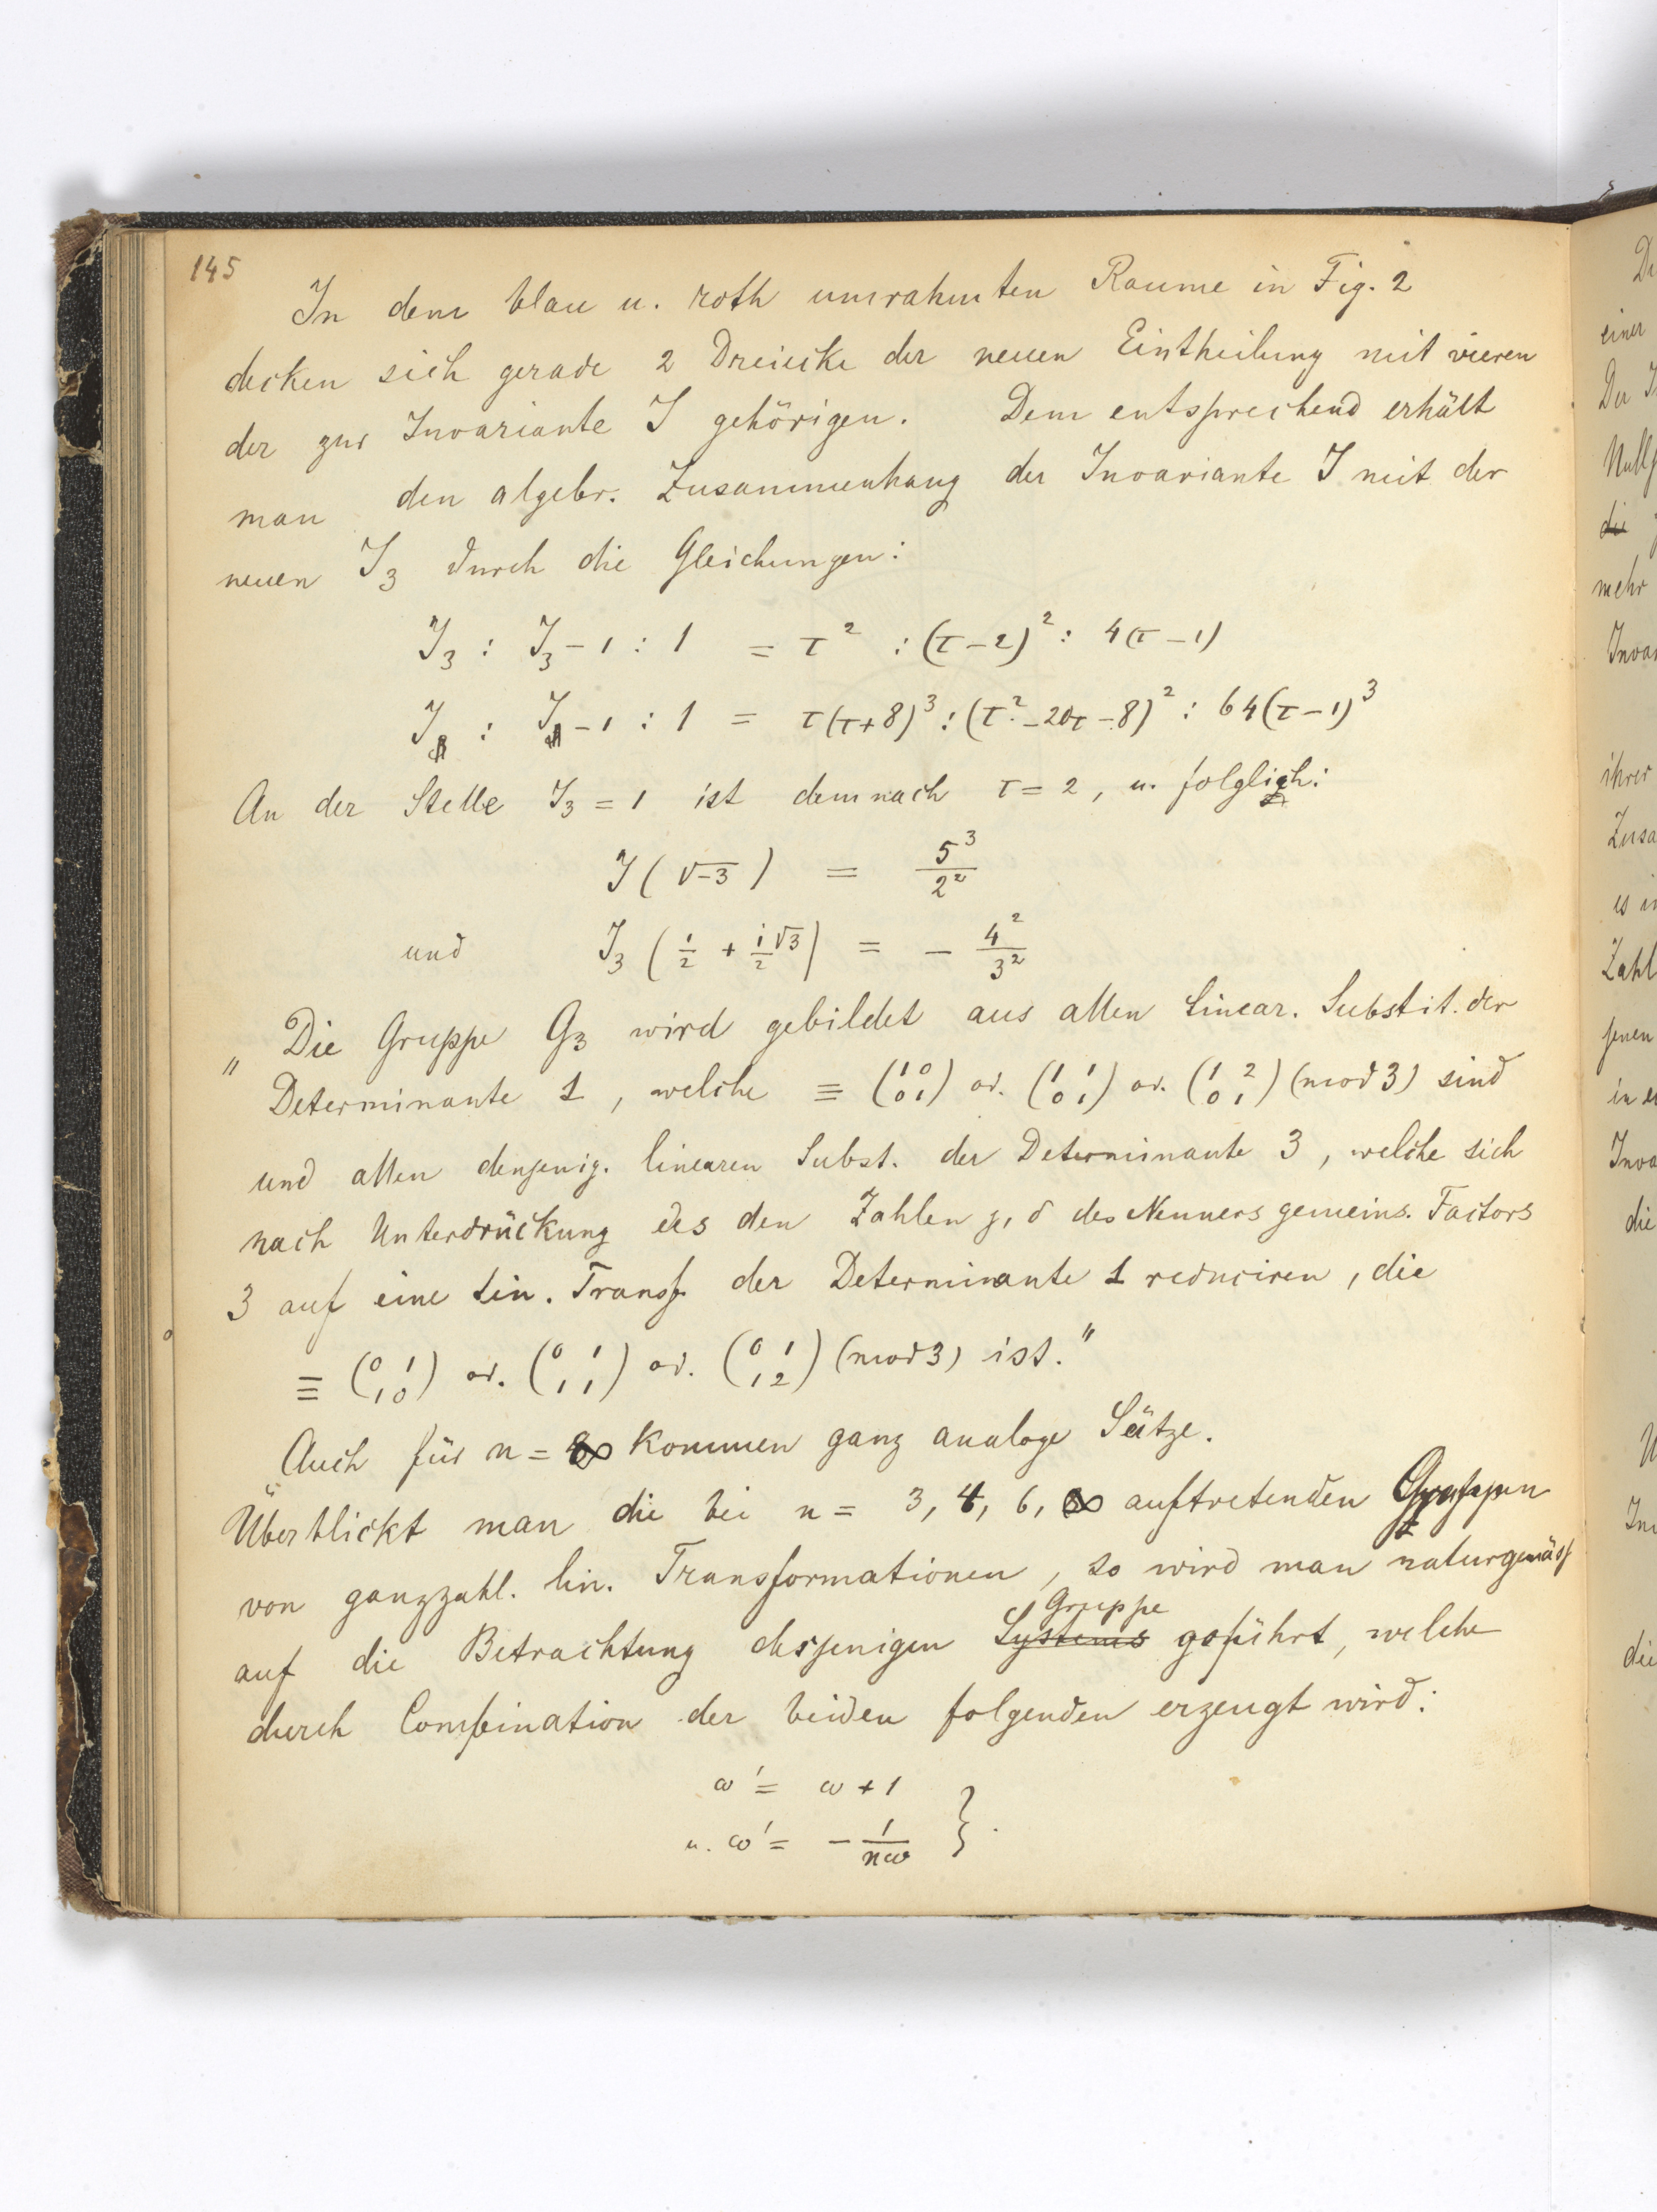 145
In dem blau u. roth umrahmten Raume in Fig. 2
decken sich gerade 2 Dreiecke der neuen Eintheilung mit vieren
der zur Invariante J gehörigen. Dem entsprechend erhält
man den algebr. Zusammenhang der Invariante J mit der
neuen J₃ durch die Gleichungen:
J₃ : J₃ - 1 : 1 = τ² : (τ-2)² : 4(τ-1)
J : J - 1 : 1 = τ(τ+8)³ : (τ² - 20τ - 8)² : 64(τ-1)³
An der Stelle J₃ = 1 ist demnach τ = 2, u. folglich:
J(√-3) = 5³/2²
und J₃(1/2 + i√3/2) = - 4²/3²
„Die Gruppe G₃ wird gebildet aus allen linear. Substit. der
Determinante 1, welche ≡ (1 0 / 0 1) od. (1 1 / 0 1) od. (1 2 / 0 1) (mod 3) sind
und allen denjenig. linearen Subst. der Determinante 3, welche sich
nach Unterdrückung des den Zahlen γ, δ des Nenners gemeins. Factors
3 auf eine lin. Transf. der Determinante 1 reduciren, die
≡ (0 1 / 1 0) od. (0 1 / 1 1) od. (0 1 / 1 2) (mod 3) ist."
Auch für n = ∞ kommen ganz analoge Sätze.
Überblickt man die bei n = 3, 4, 6, ∞ auftretenden Gruppen
von ganzzahl. lin. Transformationen, so wird man naturgemäss
auf die Betrachtung desjenigen Systems Gruppe geführt, welche
durch Combination der beiden folgenden erzeugt wird:
ω' = ω + 1
u. ω' = - 1/nω }.
einer
mehr
ihrer
jenen
die